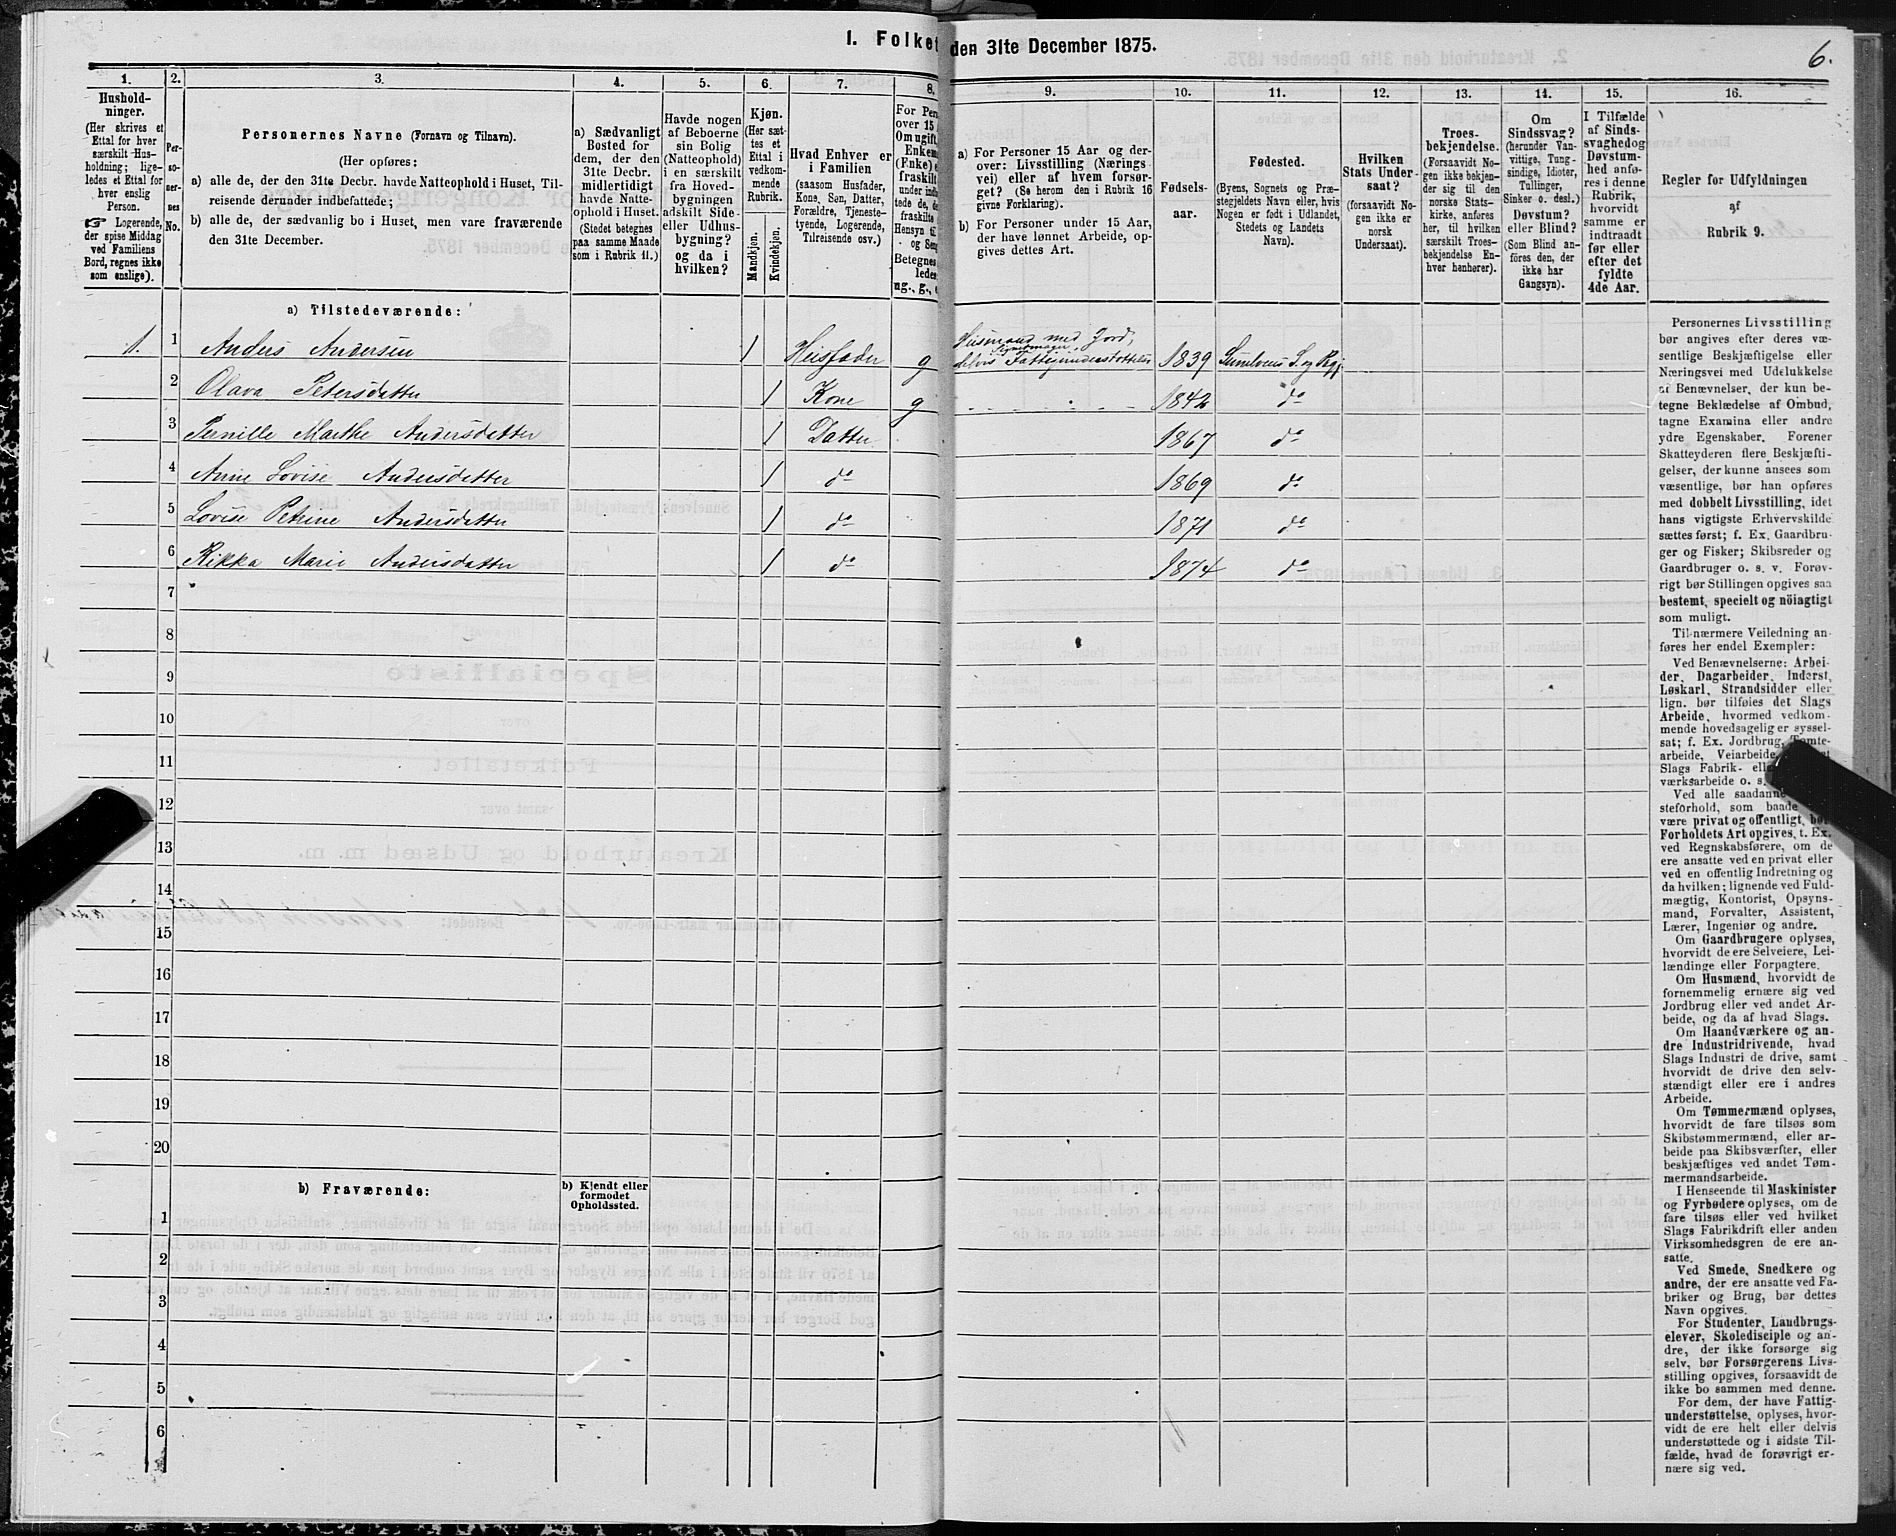 1. Folket
den 31te December 1875.
6.
1.
2.
3.
4.
5.
6.
7.
8.
9.
10.
11.
12.
13.
14.
15.
16.
Hushold-
ninger.
(Her skrives et
Ettal for hver
særskilt Hus-
holdning; lige-
ledes et Ettal for
hver enslig
Person.
☞ Logerende,
der spise Middag
ved Familiens
Bord, regnes ikke
som enslige).
Per-
so-
ner-
nes
No.
Personernes Navne (Fornavn og Tilnavn).
(Her opføres:
a) alle de, der den 31te Decbr. havde Natteophold i Huset, Til-
reisende derunder indbefattede;
b) alle de, der sædvanlig bo i Huset, men vare fraværende
den 31te December.
a) Sædvanligt
Bosted for
dem, der den
31te Decbr.
midlertidigt
havde Natte-
ophold i Huset.
(Stedet betegnes
paa samme Maade
som i Rubrik 11.)
Havde nogen
af Beboerne
sin Bolig
(Natteophold)
i en særskilt
fra Hoved-
bygningen
adskilt Side-
eller Udhus-
bygning?
og da i
hvilken?
Kjøn.
(Her sæt-
tes et
Ettal i
vedkom-
mende
Rubrik.
Mandkjøn.
Kvindekjøn.
Hvad Enhver er
i Familien
(saasom Husfader,
Kone, Søn, Datter,
Forældre, Tjeneste-
tyende, Logerende,
Tilreisende osv.)
For Pers
over 15
Om ugift,
Enkem
(Fnke)
fraskilt
under indr
tede de, de
fraskilte
Hensyn til
og Seng
Betegnes
ledes
ug., g.,
a) For Personer 15 Aar og der-
over: Livsstilling (Nærings
vei) eller af hvem forsør-
get? (Se herom den i Rubrik 16
givne Forklaring).
b) For Personer under 15 Aar,
der have lønnet Arbeide, op-
gives dettes Art.
Fødsels-
aar.
Fødested.
(Byens, Sognets og Præ-
stegjeldets Navn eller, hvis
Nogen er født i Udlandet,
Stedets og Landets
Navn).
Hvilken
Stats Under-
saat?
(forsaavidt No-
gen ikke er
norsk
Undersaat).
Troes-
bekjendelse.
(Forsaavidt No-
gen ikke bekjen-
der sig til den
norske Stats-
kirke, anføres
her, til hvilken
særskilt Troes-
bekjendelse En-
hver henhører).
Om
Sindssvag?
(herunder Van-
vittige, Tung-
sindige, Idioter,
Tullinger,
Sinker o. desl.)
Døvstum?
eller Blind?
(Som Blind an-
føres den, der
ikke har
Gangsyn).
I Tilfælde
af Sinds-
svaghed og
Døvstum-
hed anfø-
res i denne
Rubrik,
hvorvidt
samme er
indtraadt
før eller
efter det
fyldte
4de Aar.
Regler for Udfyldningen
af
Rubrik 9.
a) Tilstedeværende:
1. 1 Anders Andersen 1 Husfader g Husmand med Jord, delvis Fattigunderstøttelse 1839 Sunelvens S. og Pgj
2 Olava Petersdatter 1 Kone g 1842 do
3 Pernille Marthe Andersdatter 1 Datter 1867 do
4 Anne Lovise Andersdatter 1 do 1869 do
5 Lovise Petrine Andersdatter 1 do 1871 do
6 Rikka Marie Andersdatter 1 do 1874 do
7
8
9
10
11
12
13
14
15
16
17
18
19
20
b) Fraværende:
b) Kjendt eller
formodet
Opholdssted.
1
2
3
4
5
6
Personernes Livsstilling
bør angives efter deres væ-
sentlige Beskjæftigelse eller
Næringsvei med Udelukkelse
af Benævnelser, der kun be-
tegne Beklædelse af Ombud,
tagne Examina eller andre
ydre Egenskaber. Forener
Skatteyderen flere Beskjæfti-
gelser, der kunne ansees som
væsentlige, bør han opføres
med dobbelt Livsstilling, idet
hans vigtigste Erhvervskilde
sættes først; f. Ex. Gaardbru-
ger og Fisker; Skibsreder og
Gaardbruger o. s. v. Forøv-
rigt bør Stillingen opgives saa
bestemt, specielt og nöiagtigt
som muligt.
Til nærmere Veiledning an-
føres her endel Exempler:
Ved Benævnelserne: Arbei-
der, Dagarbeider, Inderst,
Løskarl, Strandsidder eller
lign. bør tilføies det Slags
Arbeide, hvormed vedkom-
mende hovedsagelig er syssel-
sat; f. Ex. Jordbrug, Tømte-
arbeide, Veiarbeide,
Slags Fabrik- elle
værksarbeide o. s.
Ved alle saadanne
steforhold, som baade
være privat og offentligt, bør
Forholdets Art opgives, t. Ex.
ved Regnskabsførere, om de
ere ansatte ved en privat eller
ved en offentlig Indretning og
da hvilken; lignende ved Fuld-
mægtig, Kontorist, Opsyns-
mand, Forvalter, Assistent,
Lærer, Ingeniør og andre.
Om Gaardbrugere oplyses,
hvorvidt de ere Selveiere, Lei-
lændinge eller Forpagtere.
Om Husmænd, hvorvidt de
fornemmelig ernære sig ved
Jordbrug eller ved andet Ar-
beide, og da af hvad Slags.
Om Haandværkere og an-
dre Industridrivende, hvad
Slags Industri de drive, samt
hvorvidt de drive den selv-
stændigt eller ere i andres
Arbeide.
Om Tømmermænd oplyses,
hvorvidt de fare tilsøs som
Skibstømmermænd, eller ar-
beide paa Skibsværfter, eller
beskjæftiges ved andet Tøm-
mermandsarbeide.
I Henseende til Maskinister
og Fyrbødere oplyses, om de
fare tilsøs eller ved hvilket
Slags Fabrikdrift eller anden
Virksomhedsgren de ere an-
satte.
Ved Smede, Snedkere og
andre, der ere ansatte ved Fa-
briker og Brug, bør dettes
Navn opgives.
For Studenter, Landbrugs-
elever, Skoledisciple og an-
dre, der ikke forsørge sig
selv, bør Forsørgerens Livs-
stilling opgives, forsaavidt de
ikke bo sammen med denne.
For dem, der have Fattig-
understøttelse, oplyses, hvor-
vidt de ere helt eller delvis
understøttede og i sidste Til-
fælde, hvad de forøvrigt er-
nære sig ved.